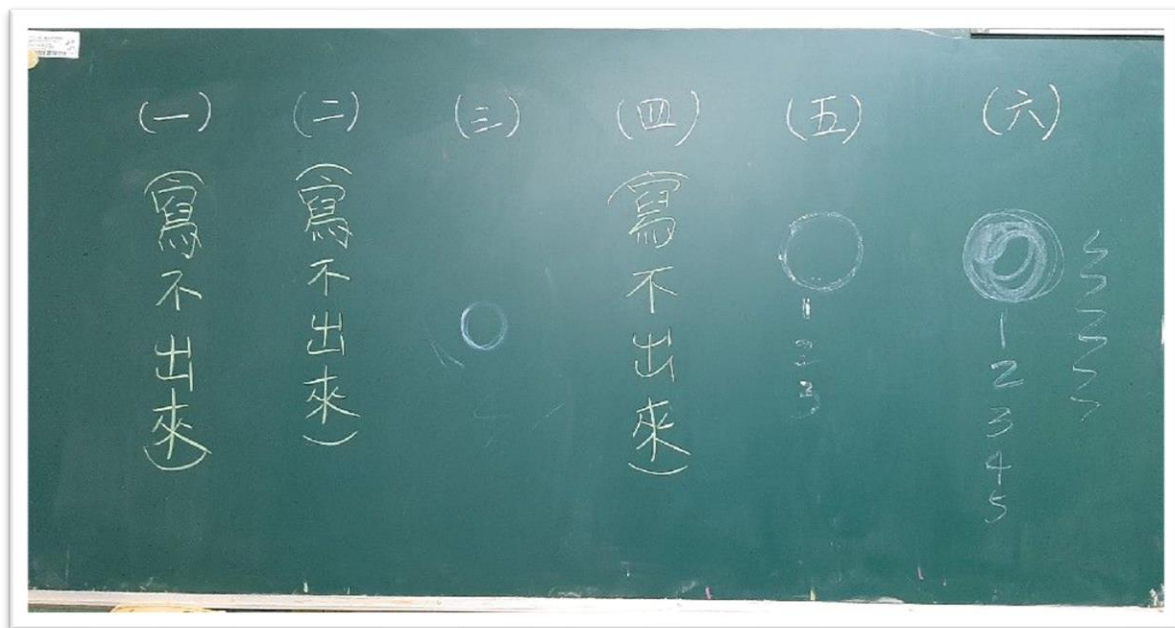 (一)
(寫不出來)
(二)
(寫不出來)
(三)
(四)
(寫不出來)
(五)
1
2
3
(六)
1
2
3
4
5